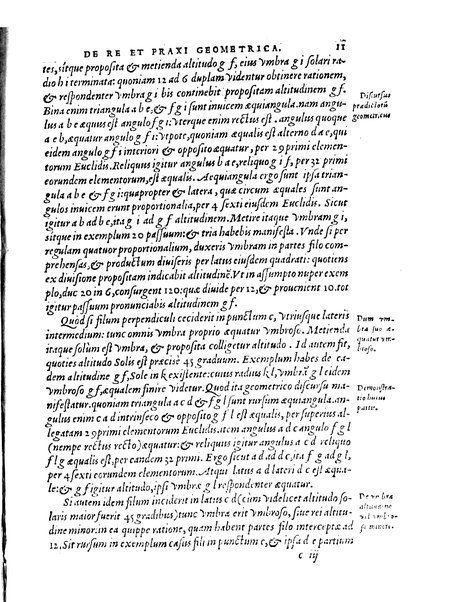 DE RE ET PRAXI GEOMETRICA. 11
tes, sitque proposita & metienda altitudo g f, eius vmbra g i solari ra-
dio h i terminata: quoniam 12 ad 6 duplam videntur obtinere rationem,
& respondenter vmbra g i bis continebit propositam altitudinem g f.
Bina enim triangula a b e, & f g i sunt inuicem æquiangula. nam angu-
lus a b e æquus est angulo f g i: vterque enim rectus est . angulus quoque
a e b, æquatur angulo g f i: vtpote, quoniam æqualis est alterno d a e, qui
eidem angulo g f i interiori & opposito æquatur, per 29 primi elemen-
torum Euclidis. Reliquus igitur angulus b a e, reliquo g i f, per 32 primi
eorundem elementorum, est æqualis. Aequiangula ergo sunt ipsa trian-
gula a b e & f g i: quapropter & latera, quæ circum æquales sunt an-
gulos inuicem erunt proportionalia, per 4 sexti eiusdem Euclidis. Sicut
igitur a b ad b e, ita g i ad g f altitudinem. Metire itaque vmbram g i,
sitque in exemplum 20 passuum: & tria habebis manifesta. Vnde si per
regulam quatuor proportionalium, duxeris vmbram in partes filo com-
prehensas, & productum diuiseris per latus eiusdem quadrati: quotiens
ex diuisione propositam indicabit altitudinē. Vt in assumpto nuper exem-
plo, duc 20 in 6, consurgent 120: quæ diuide per 12, & prouenient 10. tot
igitur passuum pronunciabis altitudinem g f.
Discursus
prædictorũ
geometricus
Quòd si filum perpendiculi ceciderit in punctum c, vtriusque lateris
intermedium: tunc omnis vmbra proprio æquatur vmbroso. Metienda
itaque solùm est vmbra, & proposita colligetur altitudo . Id autem fit,
quoties altitudo Solis est præcisè 45 graduum. Exemplum habes de ea-
dem altitudine g f, Sole in k existente: cuius radius k l, vmbrā g l eidem
vmbroso g f, æqualem finire videtur. Quod ita geometrico discursu ma-
nifestatur. quoniam triangula a c d & f g l sunt rursùm æquiangula. an-
gulus enim c a d intrinseco & opposito g f l est æqualis, per superius al-
legatam 29 primi elementorum Euclidis. item angulus a d c angulo f g l
(nempe rectus recto) æquatur: & reliquus igitur angulus a c d reliquo
f l g æqualis est, per eandem 32 primi. Ergo sicut a d ad d c, ita f g ad g l,
per 4 sexti eorundem elementorum. Atqui latus a d lateri d c est æqua-
le: & g f igitur altitudo, ipsi vmbræ g l respondenter æquatur.
Dum vm-
bra suo æ-
quatur vm-
broso.
Demonstra-
tio huius
partis.
Si autem idem filum incidert in latus c d (cùm videlicet altitudo so-
laris maior fuerit 45 gradibus) tunc vmbra erit vmbroso, siue rei altitu-
dine minor. in ea quippe ratione, quam habent partes filo interceptæ ad
12. Sit rursum in exemplum casus fili in punctum e, & ipsa d e partium
De vmbra
altitudine
vel vmbro-
so minori.
c iij